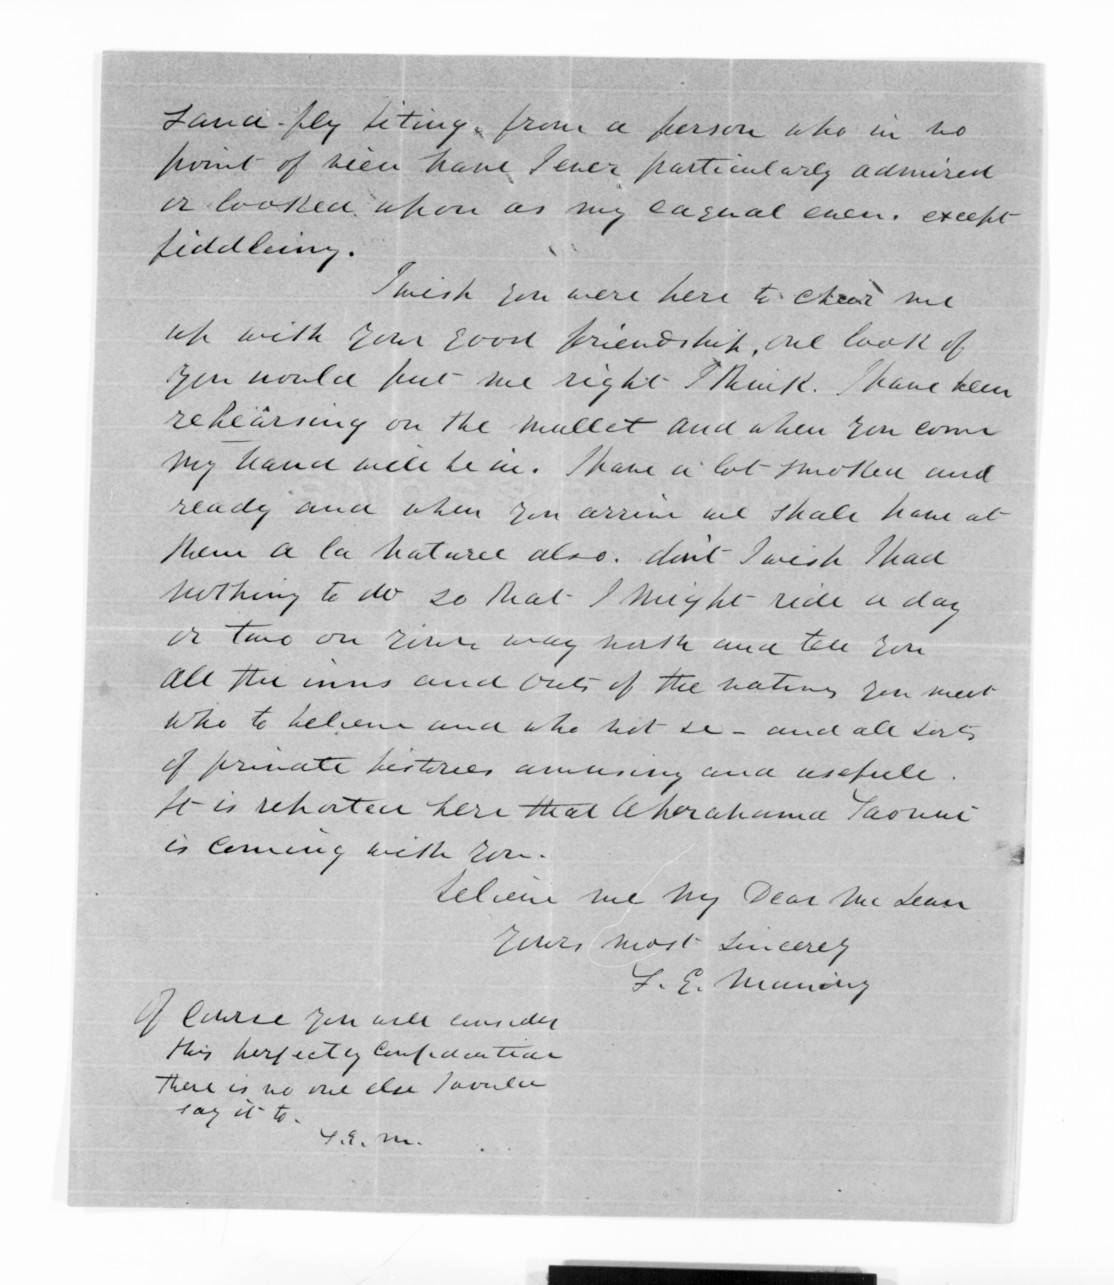 sand-fly biting, from a person who in no
point of view have I ever particularly admired
or looked upon as my eaqual even. except
fiddleing.
I wish you were here to chear me
up with your good friendship, one look of
you would put me right I think. I have been
rehearsing on the mullet and when you come
my hand will be in. I have a lot smoked and
ready and when you arrive we shall have at
them a la naturel also. don't I wish I had
nothing to do so that I might ride a day
or two on your way north and tell you
all the inns and outs of the natives you meet
who to believe and who not to - and all sorts
of private histories amusing and usefull.
It is reported here that Aperahama Taonui
is coming with you.
believe me my Dear McLean
yours most sincerely
F. E. Maning
Of course you will consider
this perfectly confidential
there is no one else I would
say it to.
F. E. M.